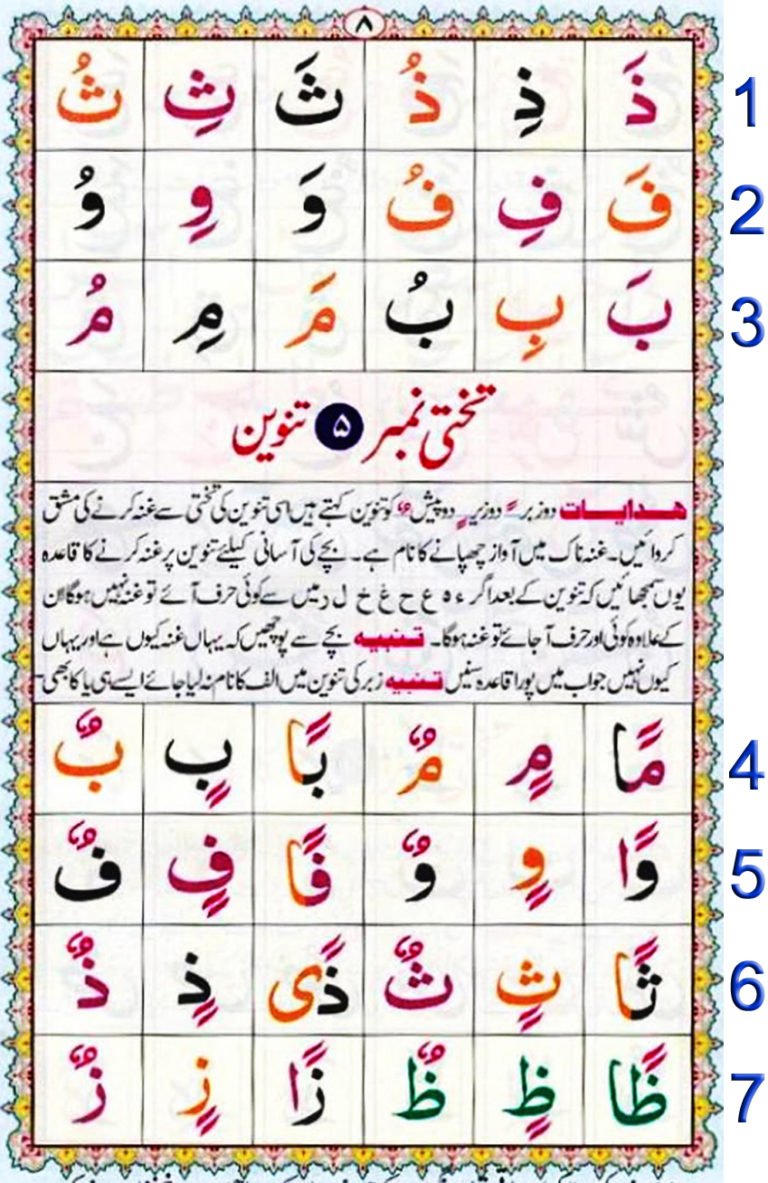 ٨
ذَ ذِ ذُ ثَ ثِ ثُ 1
فَ فِ فُ وَ وِ وُ 2
بَ بِ بُ مَ مِ مُ 3
تختی نمبر ۵ تنوین
ھدایات دو زبر ً دو زیر ٍ دو پیش ٌ کو تنوین کہتے ہیں اسی تنوین کی تختی سے غنہ کرنے کی مشق
کروائیں۔ غنہ ناک میں آواز چھپانے کا نام ہے۔ بچے کی آسانی کیلئے تنوین پر غنہ کرنے کا قاعدہ
یوں سمجھائیں کہ تنوین کے بعد اگر ء ہ ع ح غ خ ل ر میں سے کوئی حرف آئے تو غنہ نہیں ہوگا ان
کے علاوہ کوئی اور حرف آجائے تو غنہ ہوگا۔ تنبیہ بچے سے پوچھیں کہ یہاں غنہ کیوں ہے اور یہاں
کیوں نہیں جواب میں پورا قاعدہ سنیں تنبیہ زبر کی تنوین میں الف کا نام نہ لیا جائے ایسے ہی یا کا بھی
مًا مٍ مٌ بًا بٍ بٌ 4
وًا وٍ وٌ فًا فٍ فٌ 5
ثًا ثٍ ثٌ ذًی ذٍ ذٌ 6
ظًا ظٍ ظٌ زًا زٍ زٌ 7